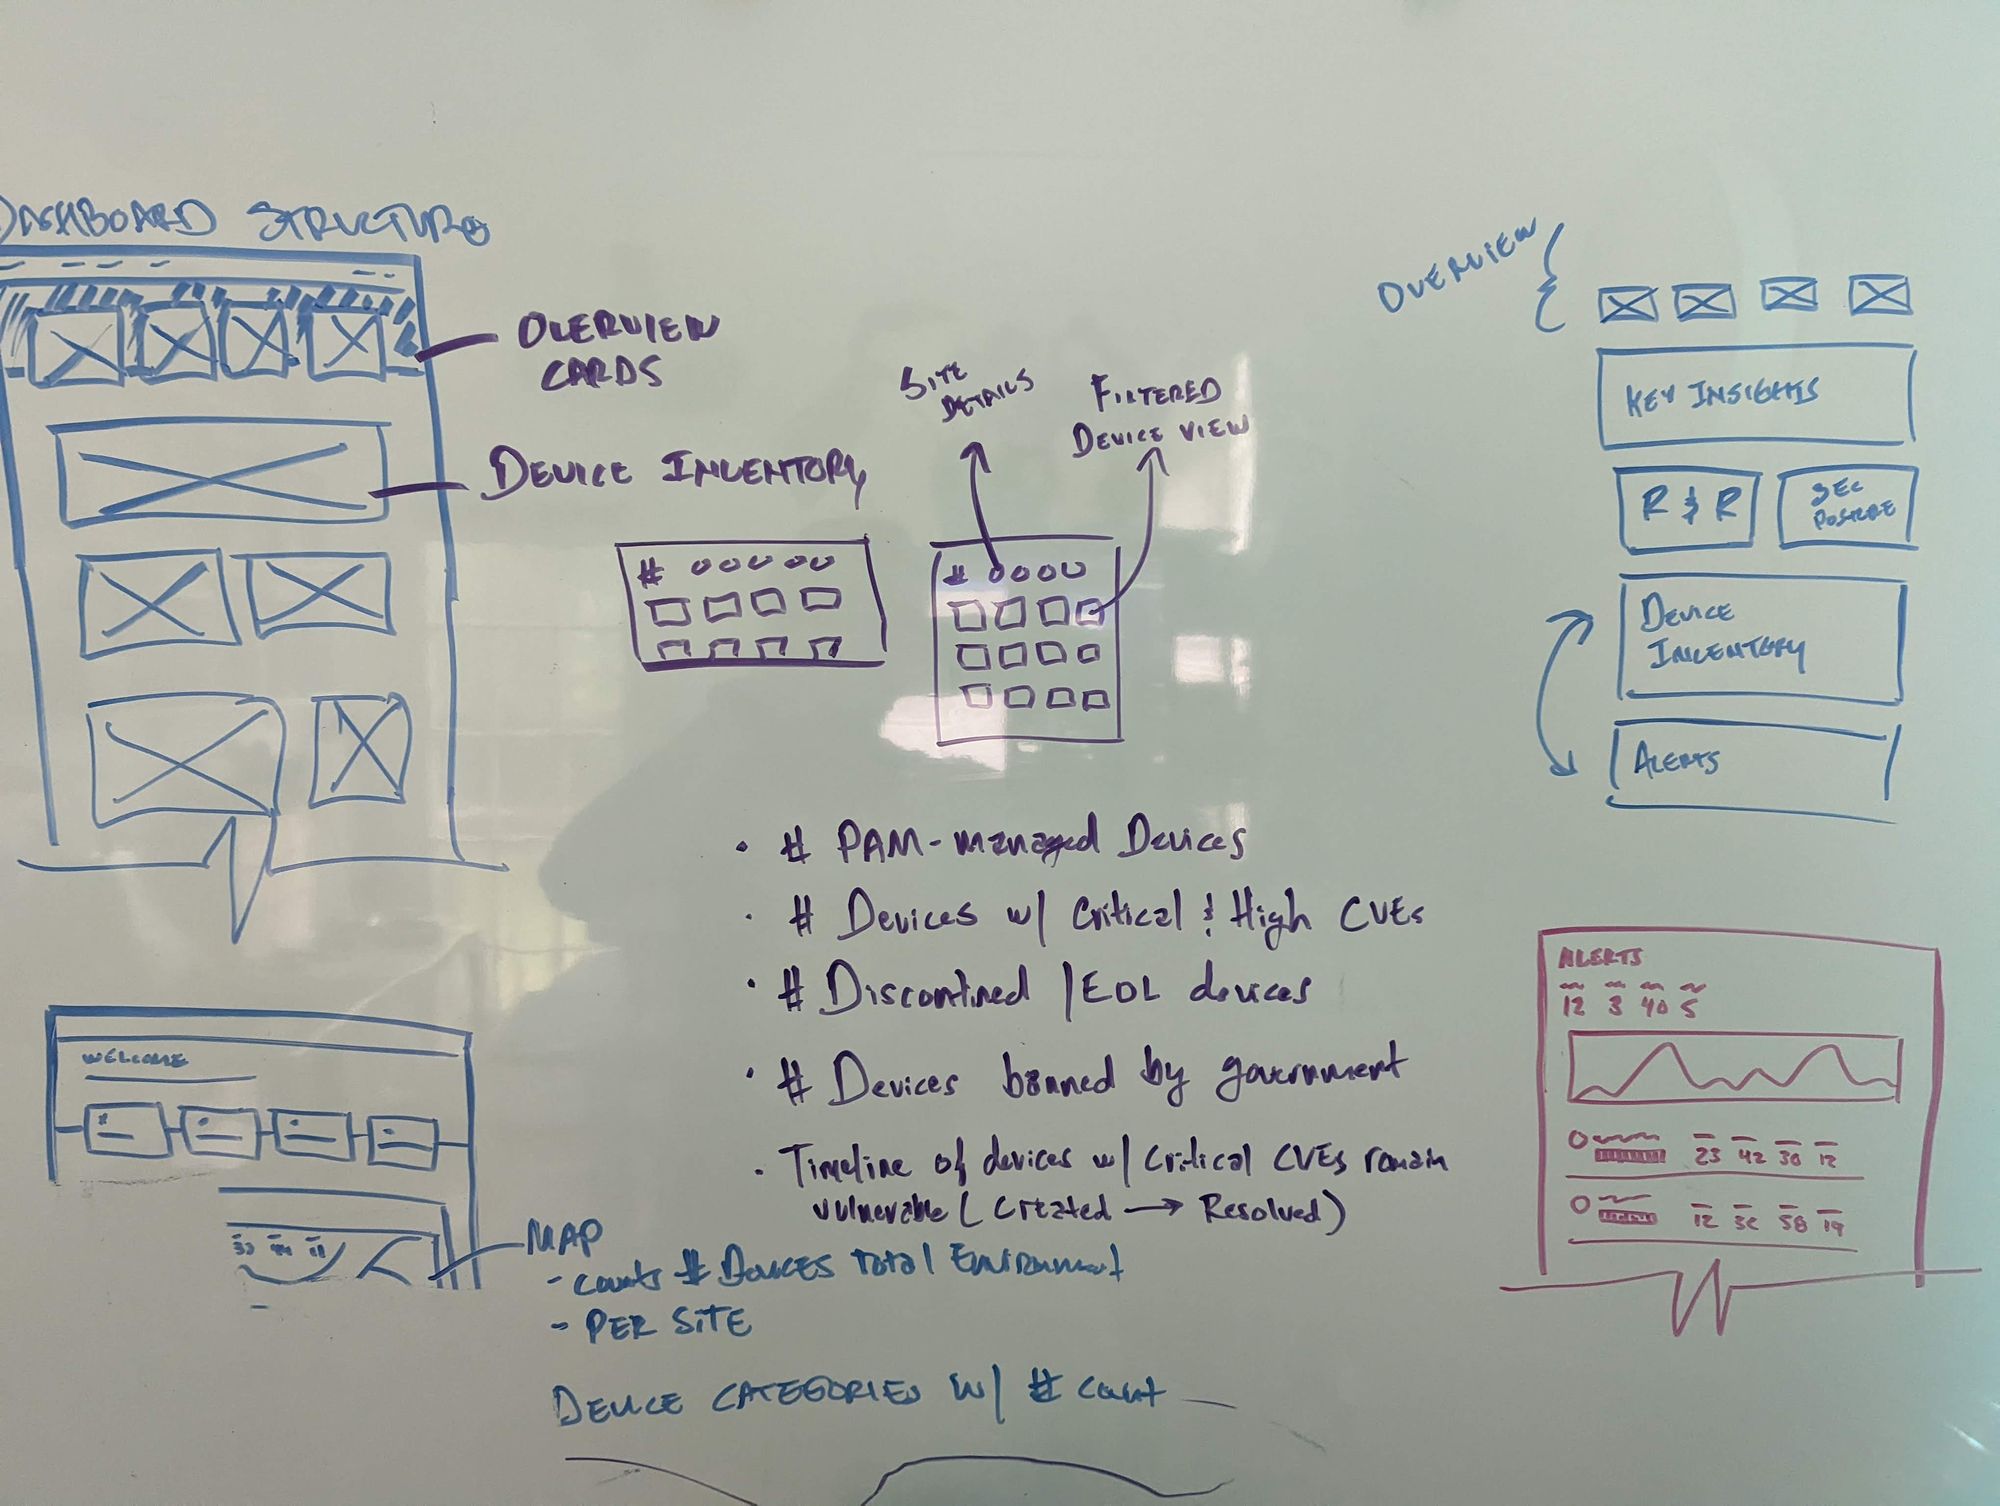 DASHBOARD STRUCTURE
OVERVIEW
CARDS
DEVICE INVENTORY
SITE
DETAILS
FILTERED
DEVICE VIEW
#
#
• # PAM-managed Devices
• # Devices w/ Critical & High CVEs
• # Discontined / EOL devices
• # Devices banned by government
• Timeline of devices w/ Critical CVEs remain
vulnerable ( Created → Resolved )
WELCOME
MAP
- counts # DEVICES TOTAL Environment
- PER SITE
DEVICE CATEGORIES W/ # count
OVERVIEW
KEY INSIGHTS
R & R
SEC
POSTURE
DEVICE
INVENTORY
ALERTS
ALERTS
12 3 40 5
23 42 30 12
12 3C 58 19